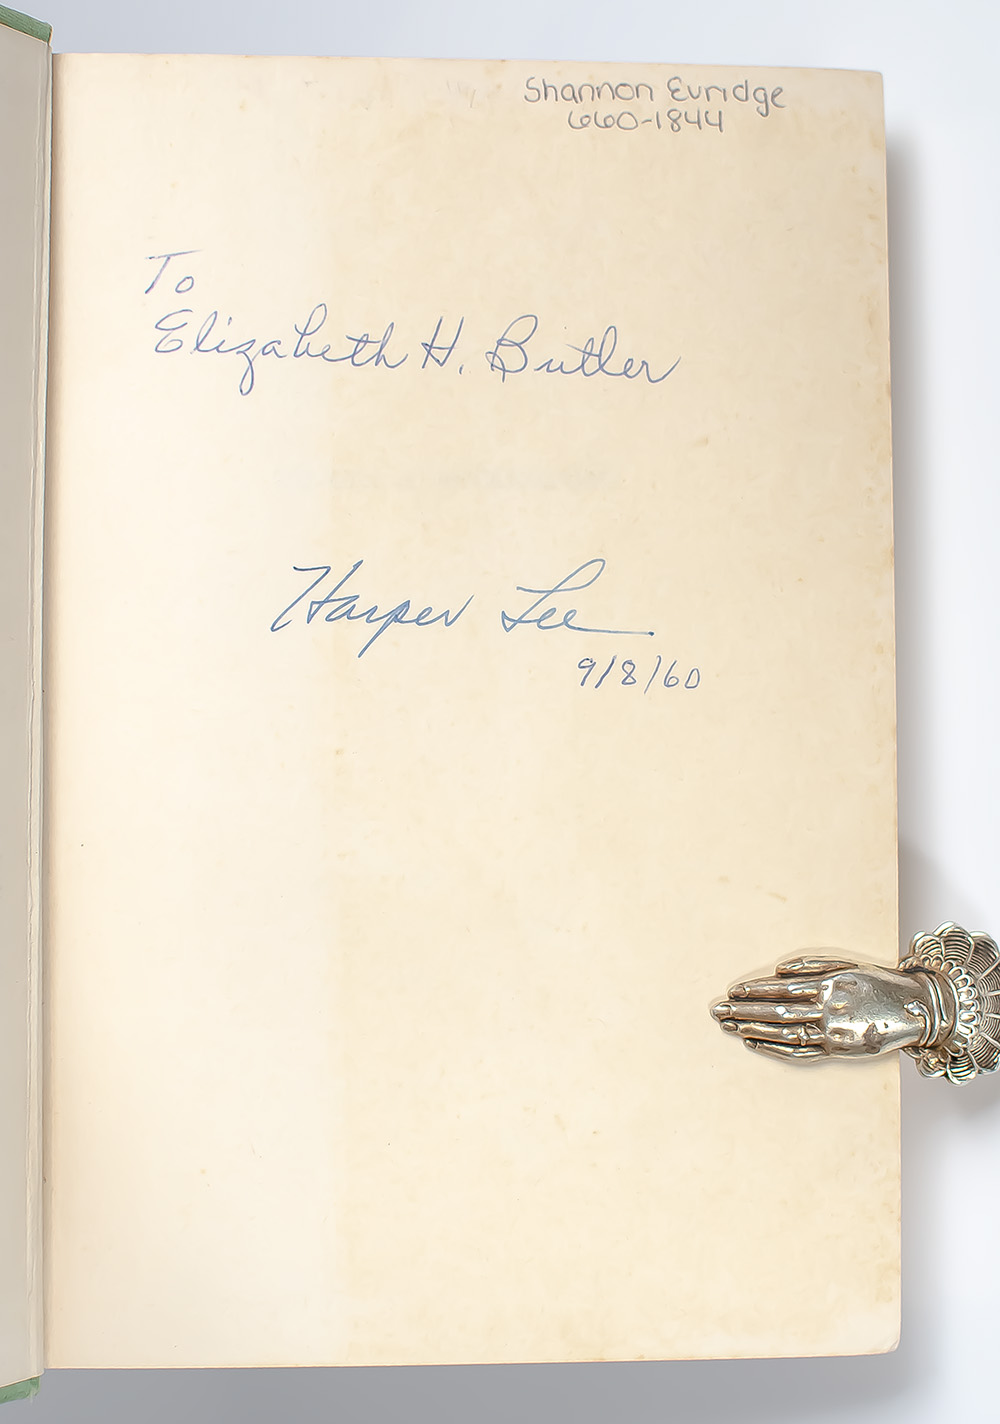 Shannon Euridge
660-1844
To
Elizabeth H. Butler
Harper Lee
9/8/60